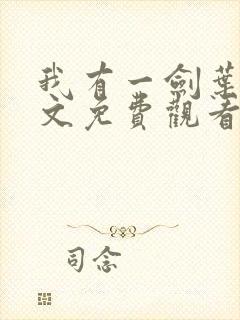 我有一劍葉
文免費觀看
司念